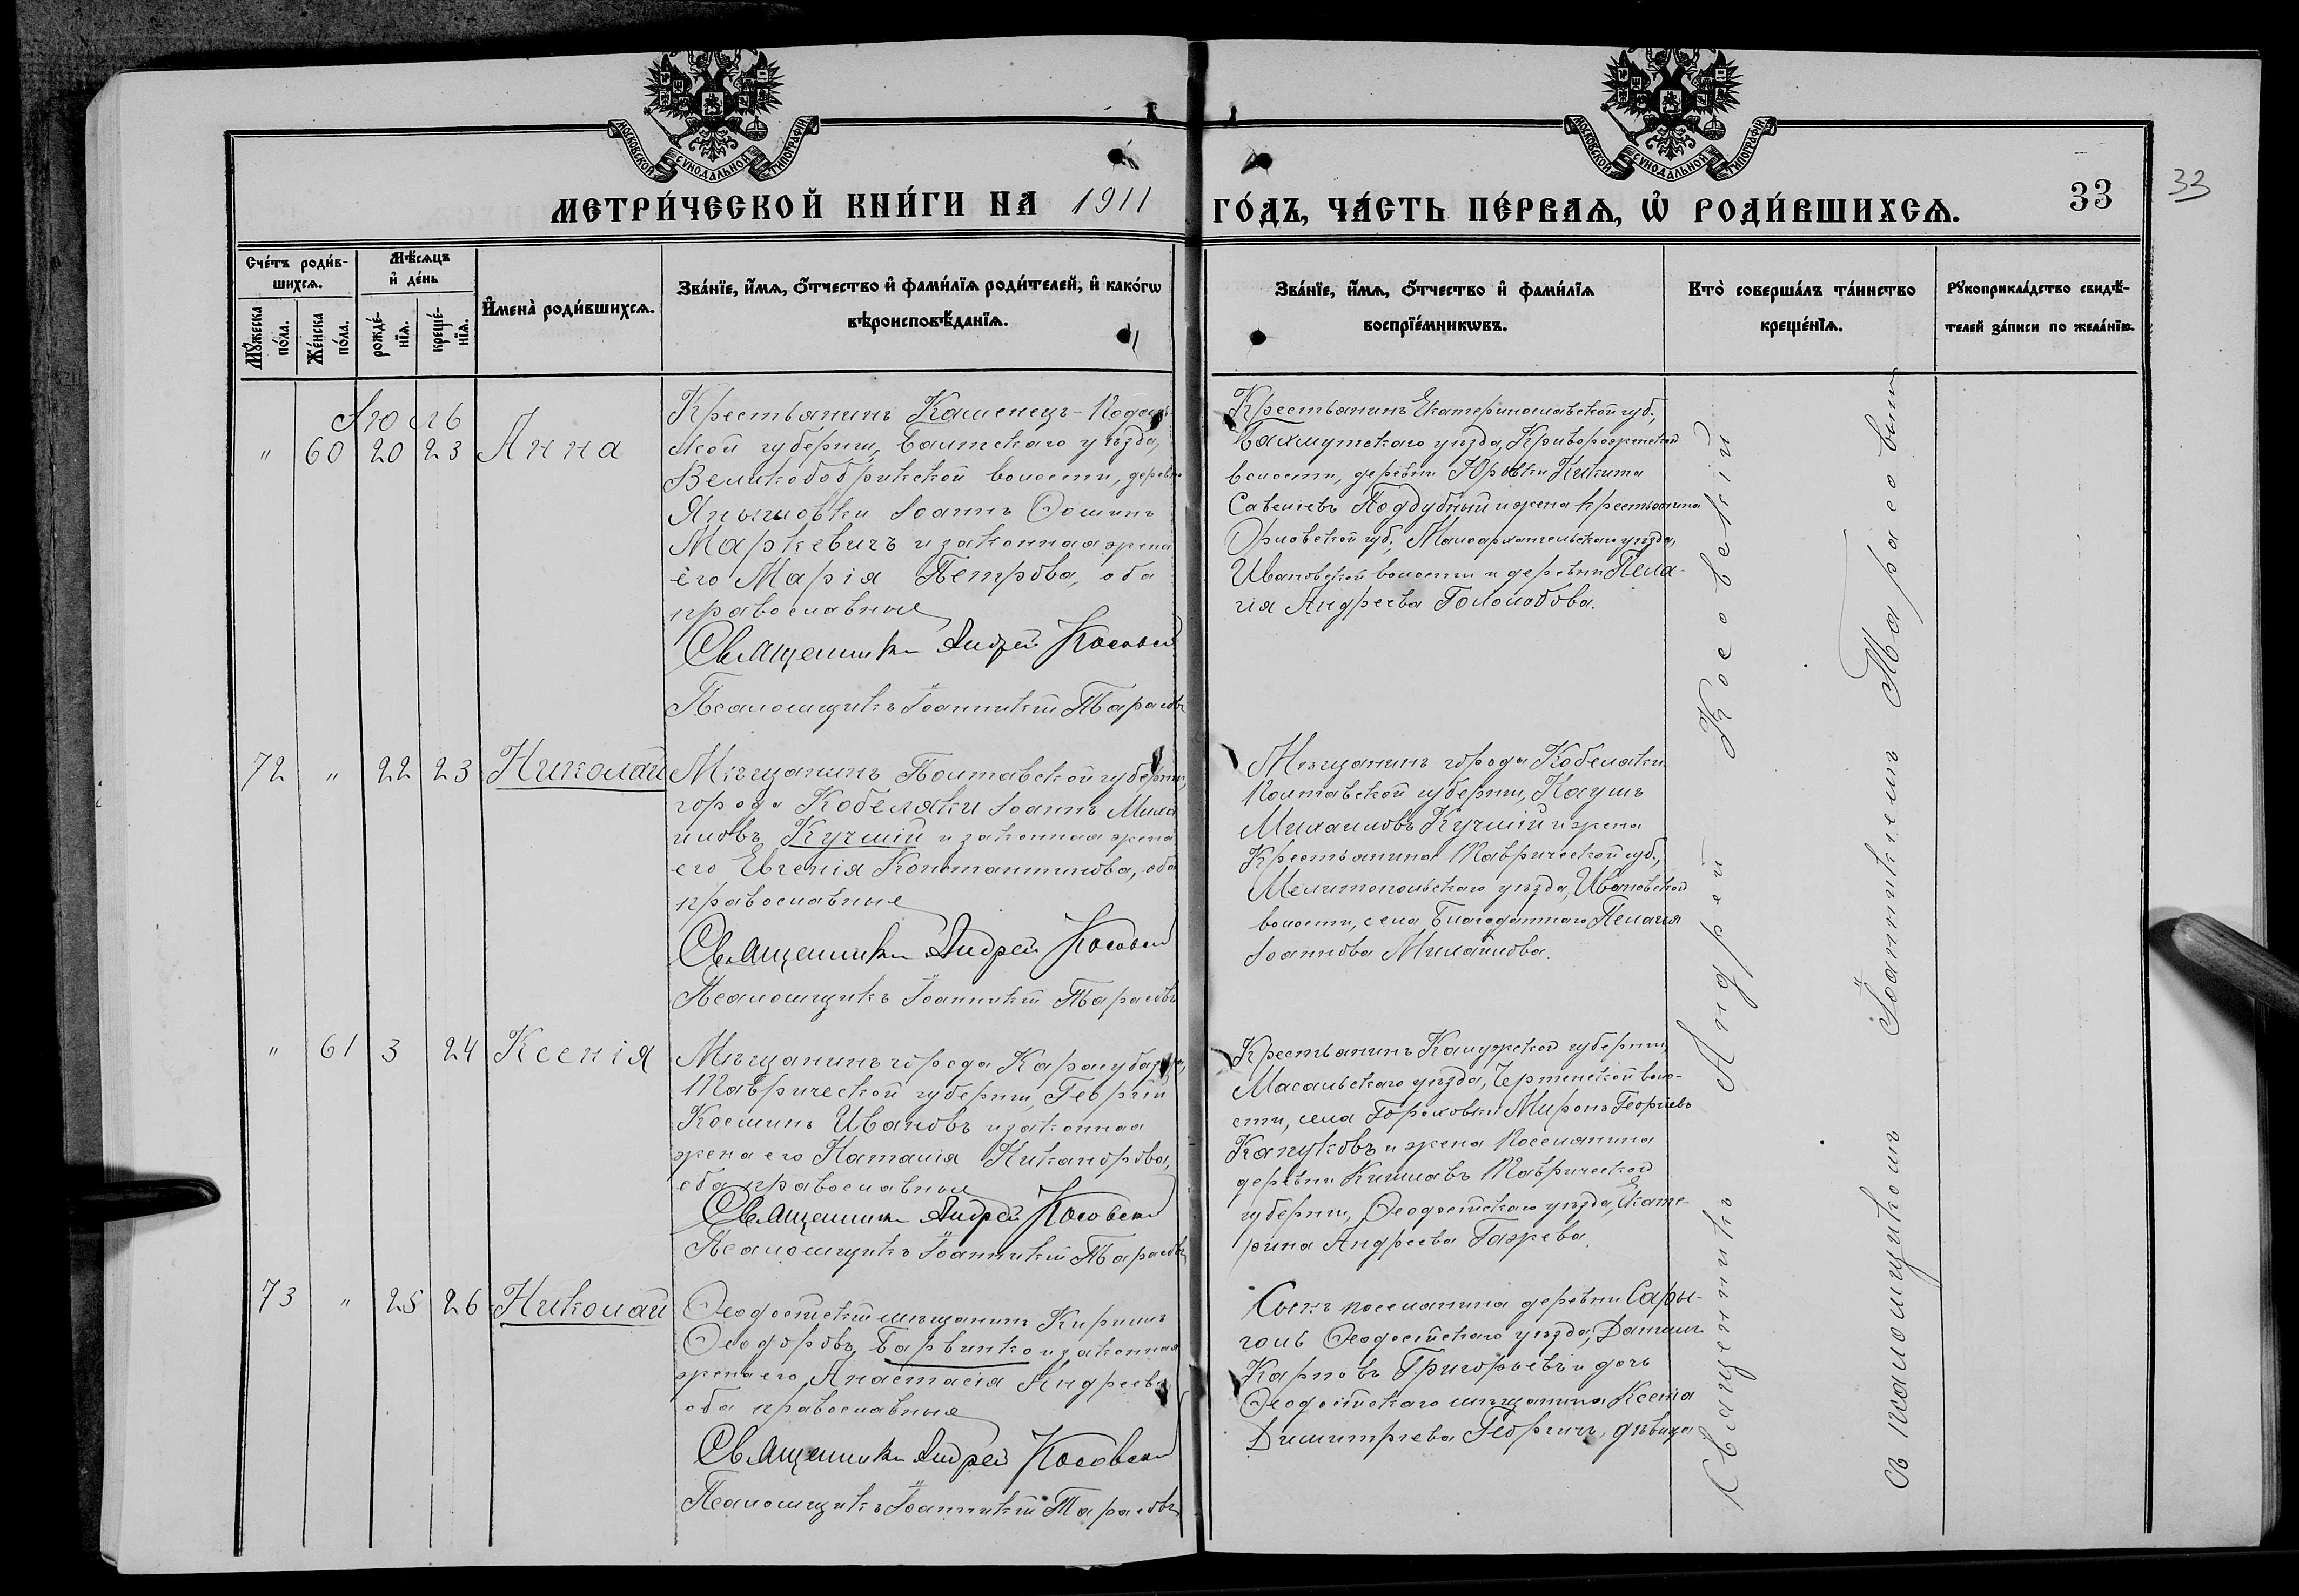 МОСКОВСКОЙ СѴНОДАЛЬНОЙ ТИПОГРАФІИ
МОСКОВСКОЙ СѴНОДАЛЬНОЙ ТИПОГРАФІИ
МЕТРИ́ЧЕСКОЙ КНИ́ГИ НА 1911
ГО́ДЪ, ЧА́СТЬ ПЕ́РВАѦ, Ѡ҆ РОДИ́ВШИХСѦ.
33
33
Сче́тъ роди́в-
шихсѧ.
Мꙋ́жеска
по́ла.
Же́нска
по́ла.
Мѣ́сѧцъ
и҆ де́нь
рожде́-
нїѧ.
креще́-
нїѧ.
И҆мена̀ роди́вшихсѧ.
Зва́нїе, и҆́мѧ, ѻ҆́тчество и҆ фами́лїѧ роди́телей, и҆ како́гѡ
вѣроисповѣ́данїѧ.
Зва́нїе, и҆́мѧ, ѻ҆́тчество и҆ фами́лїѧ
воспрїе́мникѡвъ.
Кто̀ соверша́лъ та́инство
креще́нїѧ.
Рꙋкоприкла́дство свидѣ́-
телей за́писи по жела́нїю.
Іюль
" 60 20 23 Анна
Крестьянинъ Каменецъ-Подоль
ской губерніи, Балтскаго уѣзда,
волости, деревни
Іоаннъ Ѳоминъ
Маркевичъ и законная жена
его Марія Петрова, оба
православные
Священникъ Андрей Косовскій
Псаломщикъ Іоанникій Тарасовъ
Крестьянинъ Екатеринославской губ.,
Бахмутскаго уѣзда, Криворожской
волости, деревни Юрьевки Никита
Савельевъ Поддубный и жена крестьянина
Орловской губ., Малоархангельскаго уѣзда,
Ивановской волости и деревни Пела-
гія Андреева Голомобова.
72 " 22 23 Николай
Мѣщанинъ Полтавской губерніи,
города Кобеляки Іоаннъ Миха
йловъ Кучмій и законная жена
его Евгенія Константинова, оба
православные
Священникъ Андрей Косовскій
Псаломщикъ Іоанникій Тарасовъ
Мѣщанинъ города Кобеляки
Полтавской губерніи, Наумъ
Михаиловъ Кучмій и жена
Крестьянина Таврической губ.,
Мелитопольскаго уѣзда, Ивановской
волости, села Благодатнаго Пелагія
Іоаннова Михайлова.
" 61 3 24 Ксенія
Мѣщанинъ города Карасубазара,
Таврической губерніи, Георгій
Косминъ Ивановъ и законная
жена его Наталія Никанорова,
оба православные
Священникъ Андрей Косовскій
Псаломщикъ Іоанникій Тарасовъ
Крестьянинъ Калужской губерніи,
Масальскаго уѣзда, Чертенской воло-
сти, села Гороховки Миронъ Георгіевъ
Капуковъ и жена Поселянина
деревни Кишлавъ Таврической
губерніи, Ѳеодосійскаго уѣзда, Екате-
рина Андреева Гажева.
73 " 25 26 Николай
Ѳеодосійскій мѣщанинъ Кириллъ
Ѳеодоровъ Барвинко и законная
жена его Анастасія Андреева
оба православные
Священникъ Андрей Косовскій
Псаломщикъ Іоанникій Тарасовъ
Сынъ поселянина деревни Сары-
голь Ѳеодосійскаго уѣзда,
Карповъ Григорьевъ и дочь
Ѳеодосійскаго мѣщанина Ксенія
Димитріева Георгичъ, дѣвица
Священникъ Андрей Косовскій
съ псаломщикомъ Іоанникіемъ Тарасовым